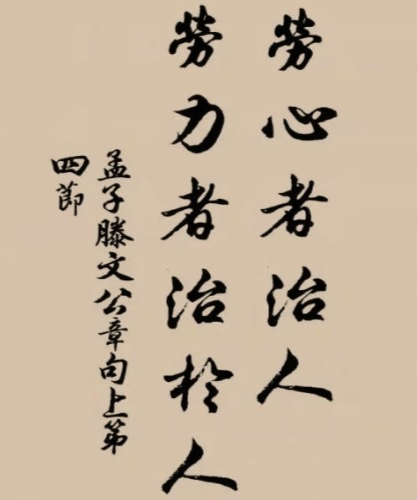 勞心者治人
勞力者治於人
孟子滕文公章句上第
四節